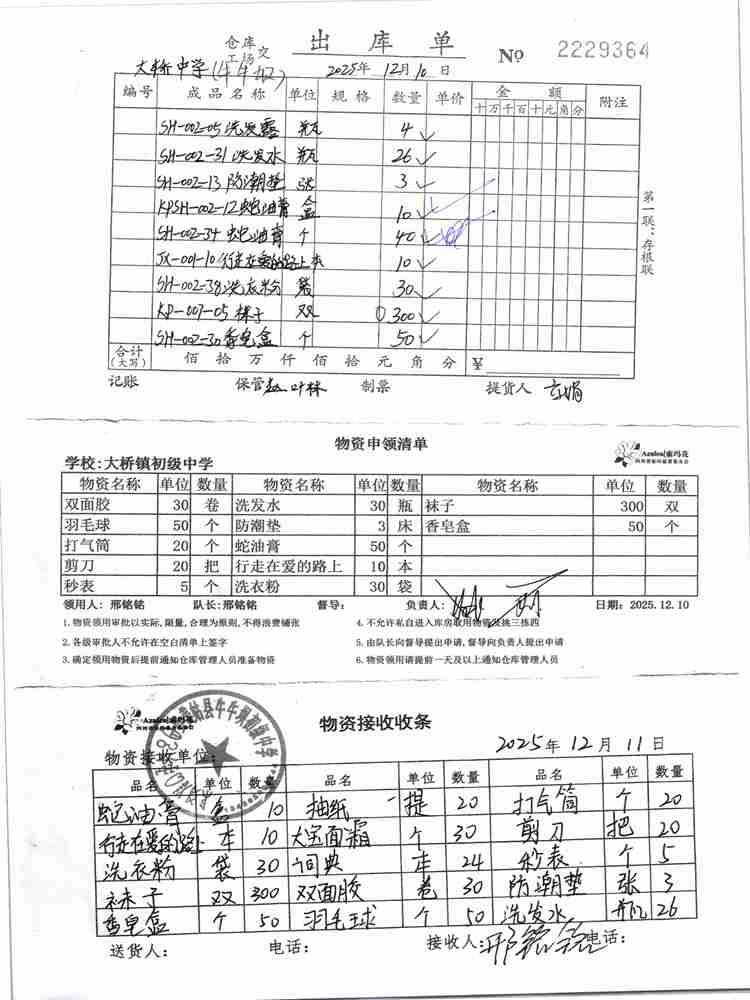 仓库
工场 交
出 库 单
№ 2229364
大桥中学(牛牛坝)
2025年 12月 10日
编号 成品名称 单位 规格 数量 单价 金额 附注
十万千百十元角分
SH-002-05 洗发露 瓶 4
SH-002-31 洗发水 瓶 26
SH-002-13 防潮垫 张 3
KPSH-002-12 蛇油膏 盒 10
SH-002-34 蛇油膏 个 40
JX-001-10 行走在爱的路上 本 10
SH-002-38 洗衣粉 袋 30
KP-007-05 袜子 双 300
SH-002-30 香皂盒 个 50
合计(大写) 佰 拾 万 仟 佰 拾 元 角 分 ¥
第一联:存根联
记账 保管 制票 提货人
物资申领清单
Azalea|索玛花
学校:大桥镇初级中学
物资名称 单位 数量 物资名称 单位 数量 物资名称 单位 数量
双面胶 30 卷 洗发水 30 瓶 袜子 300 双
羽毛球 50 个 防潮垫 3 床 香皂盒 50 个
打气筒 20 个 蛇油膏 50 个
剪刀 20 把 行走在爱的路上 10 本
秒表 5 个 洗衣粉 30 袋
领用人:邢铭铭 队长:邢铭铭 督导: 负责人: 日期:2025.12.10
1.物资领用审批以实际,限量,合理为原则,不得浪费铺张 4.不允许私自进入库房取用物资及挑三拣四
2.各级审批人不允许在空白清单上签字 5.由队长向督导提出申请,督导向负责人提出申请
3.确定领用物资后提前通知仓库管理人员准备物资 6.物资领用请提前一天及以上通知仓库管理人员
Azalea|索玛花
物资接收收条
物资接收单位:
2025年 12月 11日
品名 单位 数量 品名 单位 数量 品名 单位 数量
蛇油膏 盒 10 抽纸 提 20 打气筒 个 20
行走在爱的路上 本 10 大宝面霜 个 30 剪刀 把 20
洗衣粉 袋 30 词典 本 24 秒表 个 5
袜子 双 300 双面胶 卷 30 防潮垫 张 3
香皂盒 个 50 羽毛球 个 50 洗发水 瓶 26
送货人: 电话: 接收人:邢铭铭 电话: